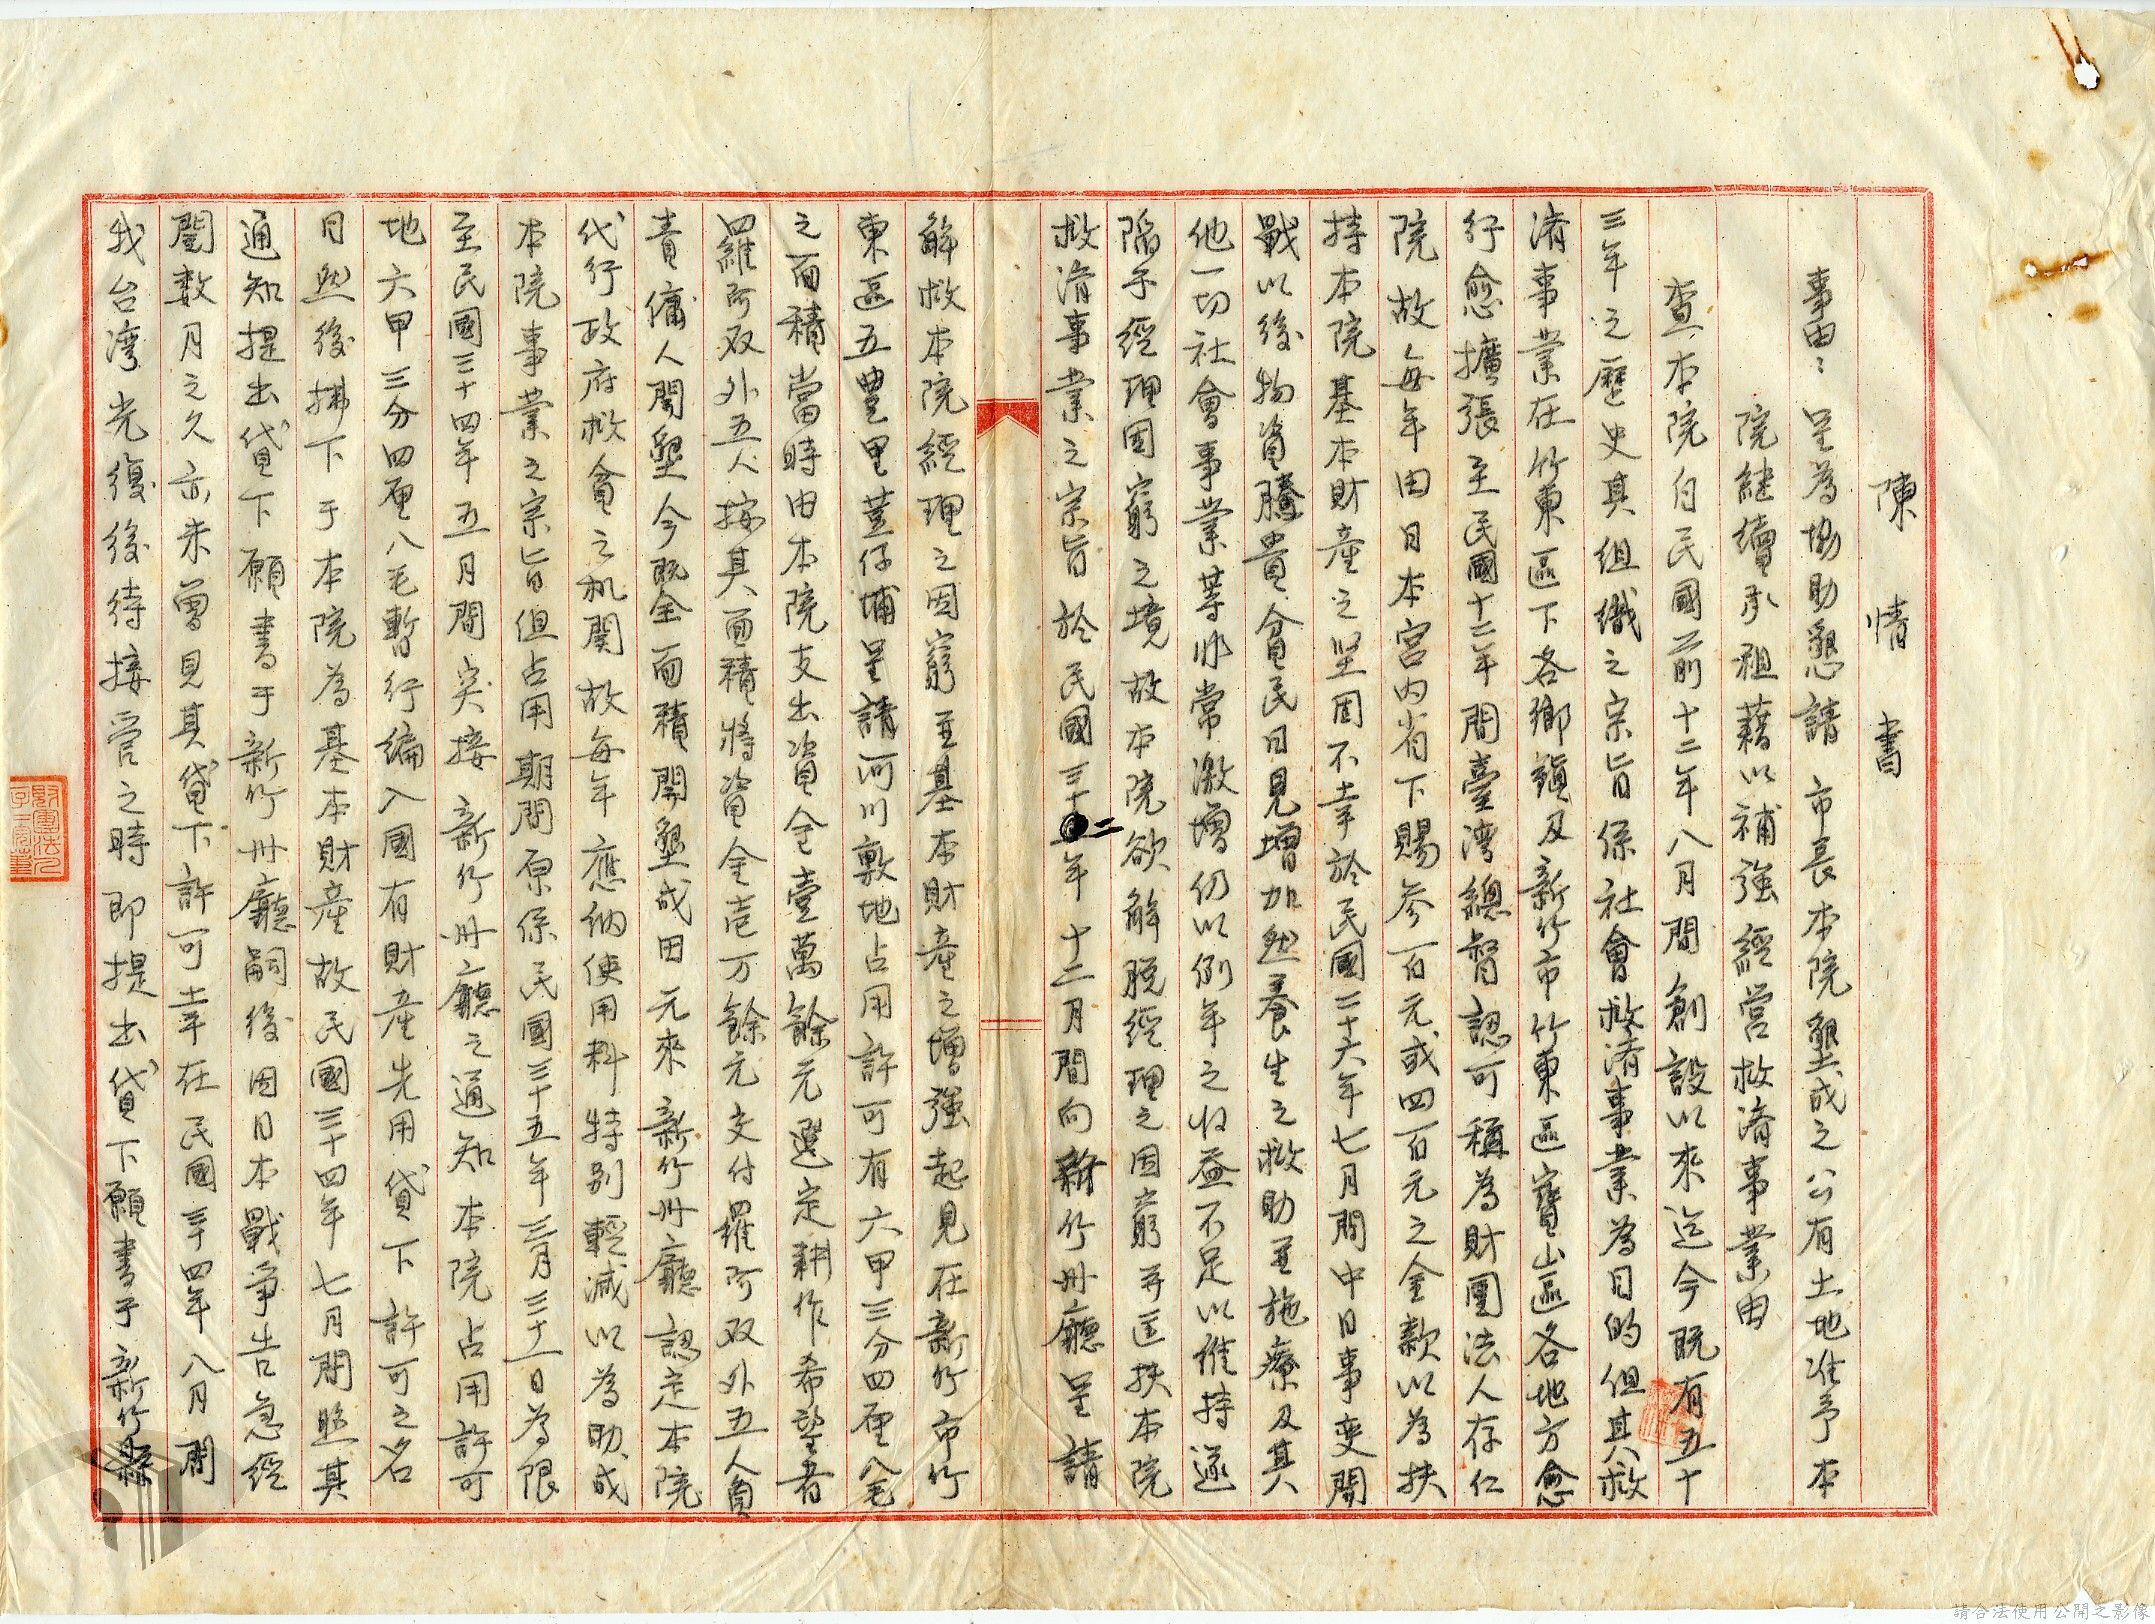 陳情書
事由：呈為協助懇請 市長本院墾成之公有土地准予本
院繼續承租藉以補強經営救濟事業由
查本院自民國前十二年八月間創設以來迄今既有五十
三年之歷史其組織之宗旨係社會救濟事業為目的但其救
濟事業在竹東區下各鄉鎮及新竹市竹東區寶山區各地方愈
行愈擴張至民國十二年間臺湾總督認可稱為財團法人存仁
院故每年由日本宮內省下賜參百元或四百元之金款以為扶
持本院基本財產之坚固不幸於民國二十六年七月間中日事变開
戰以後物資騰貴貧民日見增加然養生之救助至施療及其
他一切社會事業等非常激增仍以例年之收益不足以維持遂
陷于經理困窮之境故本院欲解脱經理之困窮并匡扶本院
救濟事業之宗旨於民國三十二年十二月間向新竹州廳呈請
解救本院經理之困窮並基本財產之增強起見在新竹市竹
東區五豊里荳仔埔呈請河川敷地占用許可有六甲三分四厘八毛
之面積當時由本院支出資金壹萬餘元選定耕作希望者
羅阿双外五人按其面積將資金壱万餘元交付羅阿双外五人負
責傭人開墾今既全面積開墾成田元來新竹州廳認定本院
代行政府救貧之机関故每年應納使用料特别輕減以為助成
本院事業之宗旨但占用期間原係民國三十五年三月三十一日為限
至民國三十四年五月間突接新竹州廳之通知本院占用許可
地六甲三分四厘八毛暫行編入國有財産先用貸下許可之名
目然後拂下于本院為基本財產故民國三十四年七月間照其
通知提出貸下願書于新竹州廳嗣後因日本戰争告急經
閲数月之久亦未曽見其貸下許可幸在民國三十四年八月間
我台湾光復後待接管之時即提出貸下願書于新竹縣
請合法使用公開之影像